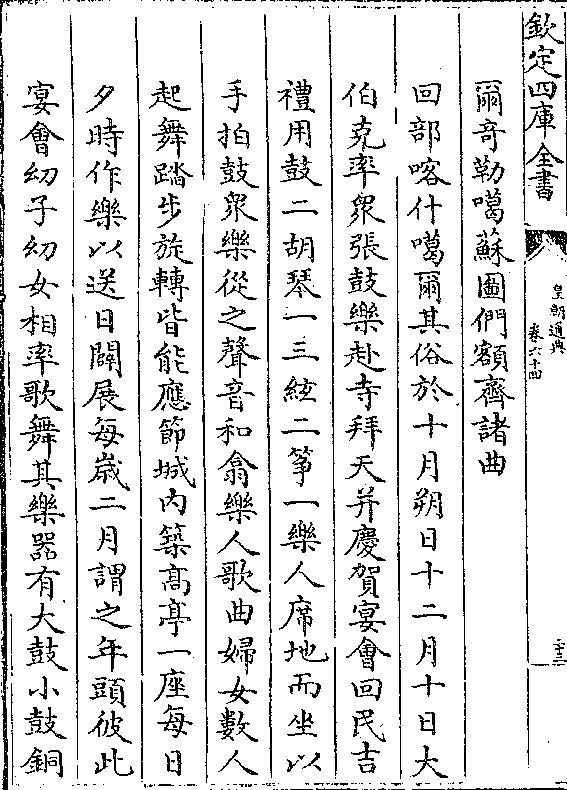 欽定四庫全書
皇朝通典
卷六十四
二十三
爾奇勒噶蘇圖們額齊諸曲
回部喀什噶爾其俗於十月朔日十二月十日大
伯克率衆張鼓樂赴寺拜天并慶賀宴會回民吉
禮用鼓二胡琴一三絃二筝一樂人席地而坐以
手拍鼓衆樂從之聲音和翕樂人歌曲婦女數人
起舞踏步旋轉皆能應節城内築髙亭一座每日
夕時作樂以送日闢展每歳二月謂之年頭彼此
宴會幼子幼女相率歌舞其樂器有大鼓小鼓銅